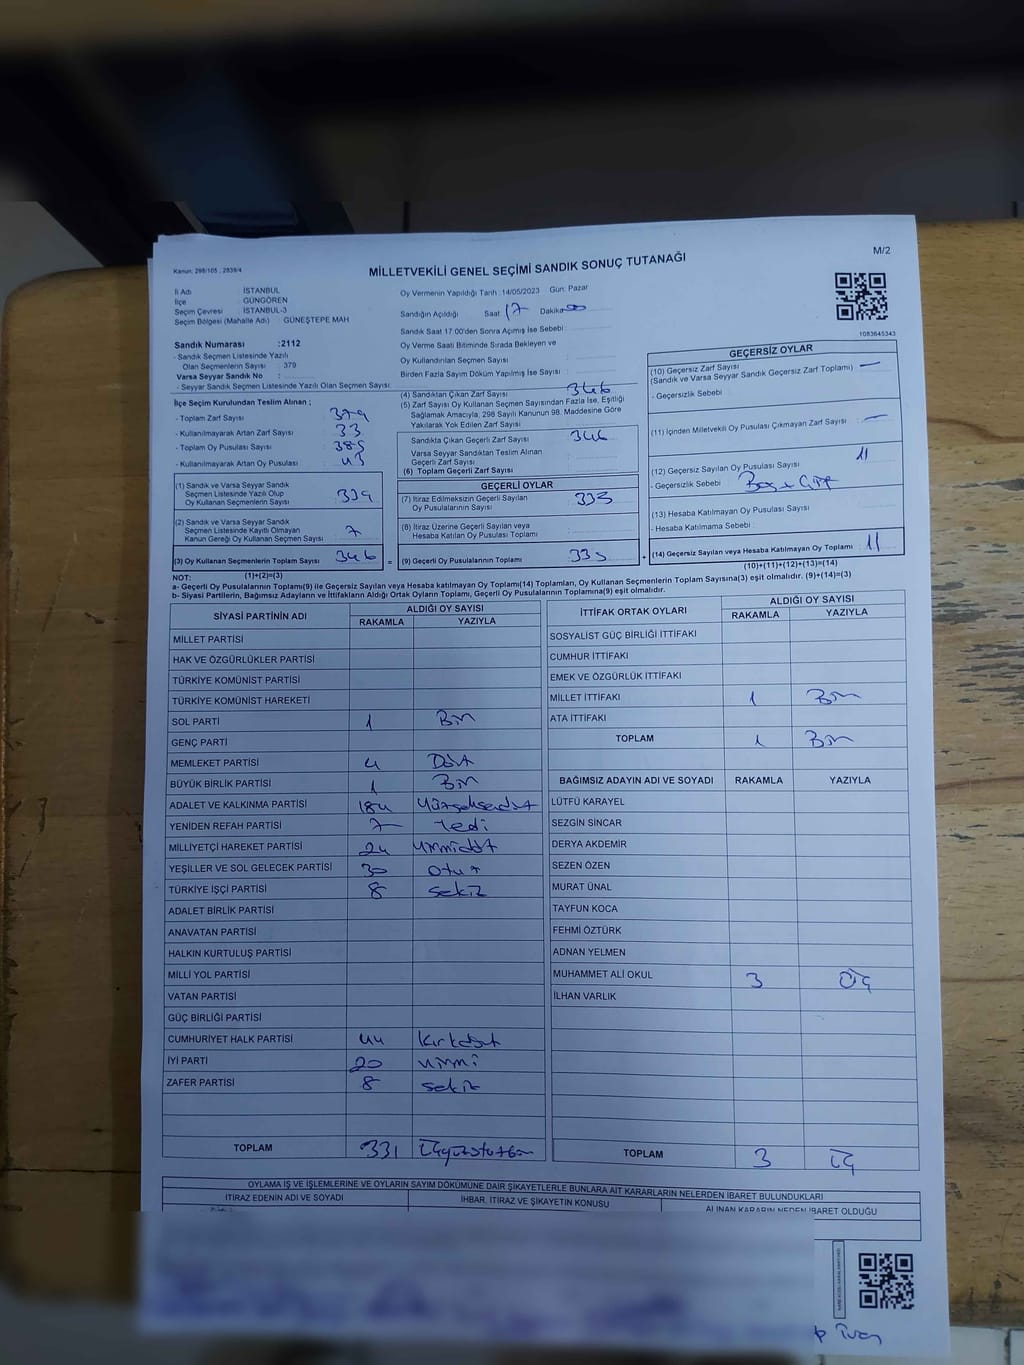 Kanun: 298/105 , 2839/4
MİLLETVEKİLİ GENEL SEÇİMİ SANDIK SONUÇ TUTANAĞI
M/2
İl Adı : İSTANBUL
İlçe : GÜNGÖREN
Seçim Çevresi : İSTANBUL-3
Seçim Bölgesi (Mahalle Adı) : GÜNEŞTEPE MAH
Sandık Numarası :2112
- Sandık Seçmen Listesinde Yazılı
Olan Seçmenlerin Sayısı : 379
Varsa Seyyar Sandık No :
- Seyyar Sandık Seçmen Listesinde Yazılı Olan Seçmen Sayısı:
Oy Vermenin Yapıldığı Tarih :14/05/2023 Gün: Pazar
Sandığın Açıldığı Saat 17 Dakika 00
Sandık Saat 17.00'den Sonra Açımış İse Sebebi :
Oy Verme Saati Bitiminde Sırada Bekleyen ve
Oy Kullandırılan Seçmen Sayısı :
Birden Fazla Sayım Döküm Yapılmış İse Sayısı :
1083645343
İlçe Seçim Kurulundan Teslim Alınan ;
- Toplam Zarf Sayısı : 379
- Kullanılmayarak Artan Zarf Sayısı : 33
- Toplam Oy Pusulası Sayısı : 385
- Kullanılmayarak Artan Oy Pusulası : 43
(1) Sandık ve Varsa Seyyar Sandık
Seçmen Listesinde Yazılı Olup
Oy Kullanan Seçmenlerin Sayısı : 339
(2) Sandık ve Varsa Seyyar Sandık
Seçmen Listesinde Kayıtlı Olmayan
Kanun Gereği Oy Kullanan Seçmen Sayısı : 7
(3) Oy Kullanan Seçmenlerin Toplam Sayısı : 346
(1)+(2)=(3)
(4) Sandıktan Çıkan Zarf Sayısı : 346
(5) Zarf Sayısı Oy Kullanan Seçmen Sayısından Fazla İse, Eşitliği
Sağlamak Amacıyla, 298 Sayılı Kanunun 98. Maddesine Göre
Yakılarak Yok Edilen Zarf Sayısı :
Sandıkta Çıkan Geçerli Zarf Sayısı : 346
Varsa Seyyar Sandıktan Teslim Alınan
Geçerli Zarf Sayısı :
(6) Toplam Geçerli Zarf Sayısı :
GEÇERLİ OYLAR
(7) İtiraz Edilmeksizin Geçerli Sayılan
Oy Pusulalarının Sayısı : 335
(8) İtiraz Üzerine Geçerli Sayılan veya
Hesaba Katılan Oy Pusulası Toplamı :
= (9) Geçerli Oy Pusulalarının Toplamı : 335 +
GEÇERSİZ OYLAR
(10) Geçersiz Zarf Sayısı
(Sandık ve Varsa Seyyar Sandık Geçersiz Zarf Toplamı) : —
- Geçersizlik Sebebi :
(11) İçinden Milletvekili Oy Pusulası Çıkmayan Zarf Sayısı : —
(12) Geçersiz Sayılan Oy Pusulası Sayısı : 11
- Geçersizlik Sebebi :
(13) Hesaba Katılmayan Oy Pusulası Sayısı :
- Hesaba Katılmama Sebebi :
(14) Geçersiz Sayılan veya Hesaba Katılmayan Oy Toplamı : 11
(10)+(11)+(12)+(13)=(14)
NOT:
a- Geçerli Oy Pusulalarının Toplamı(9) ile Geçersiz Sayılan veya Hesaba katılmayan Oy Toplamı(14) Toplamları, Oy Kullanan Seçmenlerin Toplam Sayısına(3) eşit olmalıdır. (9)+(14)=(3)
b- Siyasi Partilerin, Bağımsız Adayların ve İttifakların Aldığı Ortak Oyların Toplamı, Geçerli Oy Pusulalarının Toplamına(9) eşit olmalıdır.
SİYASİ PARTİNİN ADI ALDIĞI OY SAYISI
RAKAMLA YAZIYLA
MİLLET PARTİSİ
HAK VE ÖZGÜRLÜKLER PARTİSİ
TÜRKİYE KOMÜNİST PARTİSİ
TÜRKİYE KOMÜNİST HAREKETİ
SOL PARTİ 1 Bir
GENÇ PARTİ
MEMLEKET PARTİSİ 4 Dört
BÜYÜK BİRLİK PARTİSİ 1 Bir
ADALET VE KALKINMA PARTİSİ 184 Yüzseksendört
YENİDEN REFAH PARTİSİ 7 Yedi
MİLLİYETÇİ HAREKET PARTİSİ 24 yirmidört
YEŞİLLER VE SOL GELECEK PARTİSİ 30 otuz
TÜRKİYE İŞÇİ PARTİSİ 8 sekiz
ADALET BİRLİK PARTİSİ
ANAVATAN PARTİSİ
HALKIN KURTULUŞ PARTİSİ
MİLLİ YOL PARTİSİ
VATAN PARTİSİ
GÜÇ BİRLİĞİ PARTİSİ
CUMHURİYET HALK PARTİSİ 44 kırkdört
İYİ PARTİ 20 yirmi
ZAFER PARTİSİ 8 sekiz
TOPLAM 331 üçyüzotuzbir
İTTİFAK ORTAK OYLARI ALDIĞI OY SAYISI
RAKAMLA YAZIYLA
SOSYALİST GÜÇ BİRLİĞİ İTTİFAKI
CUMHUR İTTİFAKI
EMEK VE ÖZGÜRLÜK İTTİFAKI
MİLLET İTTİFAKI 1 Bir
ATA İTTİFAKI
TOPLAM 1 Bir
BAĞIMSIZ ADAYIN ADI VE SOYADI RAKAMLA YAZIYLA
LÜTFÜ KARAYEL
SEZGİN SİNCAR
DERYA AKDEMİR
SEZEN ÖZEN
MURAT ÜNAL
TAYFUN KOCA
FEHMİ ÖZTÜRK
ADNAN YELMEN
MUHAMMET ALİ OKUL 3 Üç
İLHAN VARLIK
TOPLAM 3 üç
OYLAMA İŞ VE İŞLEMLERİNE VE OYLARIN SAYIM DÖKÜMÜNE DAİR ŞİKAYETLERLE BUNLARA AİT KARARLARIN NELERDEN İBARET BULUNDUKLARI
İTİRAZ EDENİN ADI VE SOYADI İHBAR, İTİRAZ VE ŞİKAYETİN KONUSU ALINAN KARARIN NEDEN İBARET OLDUĞU